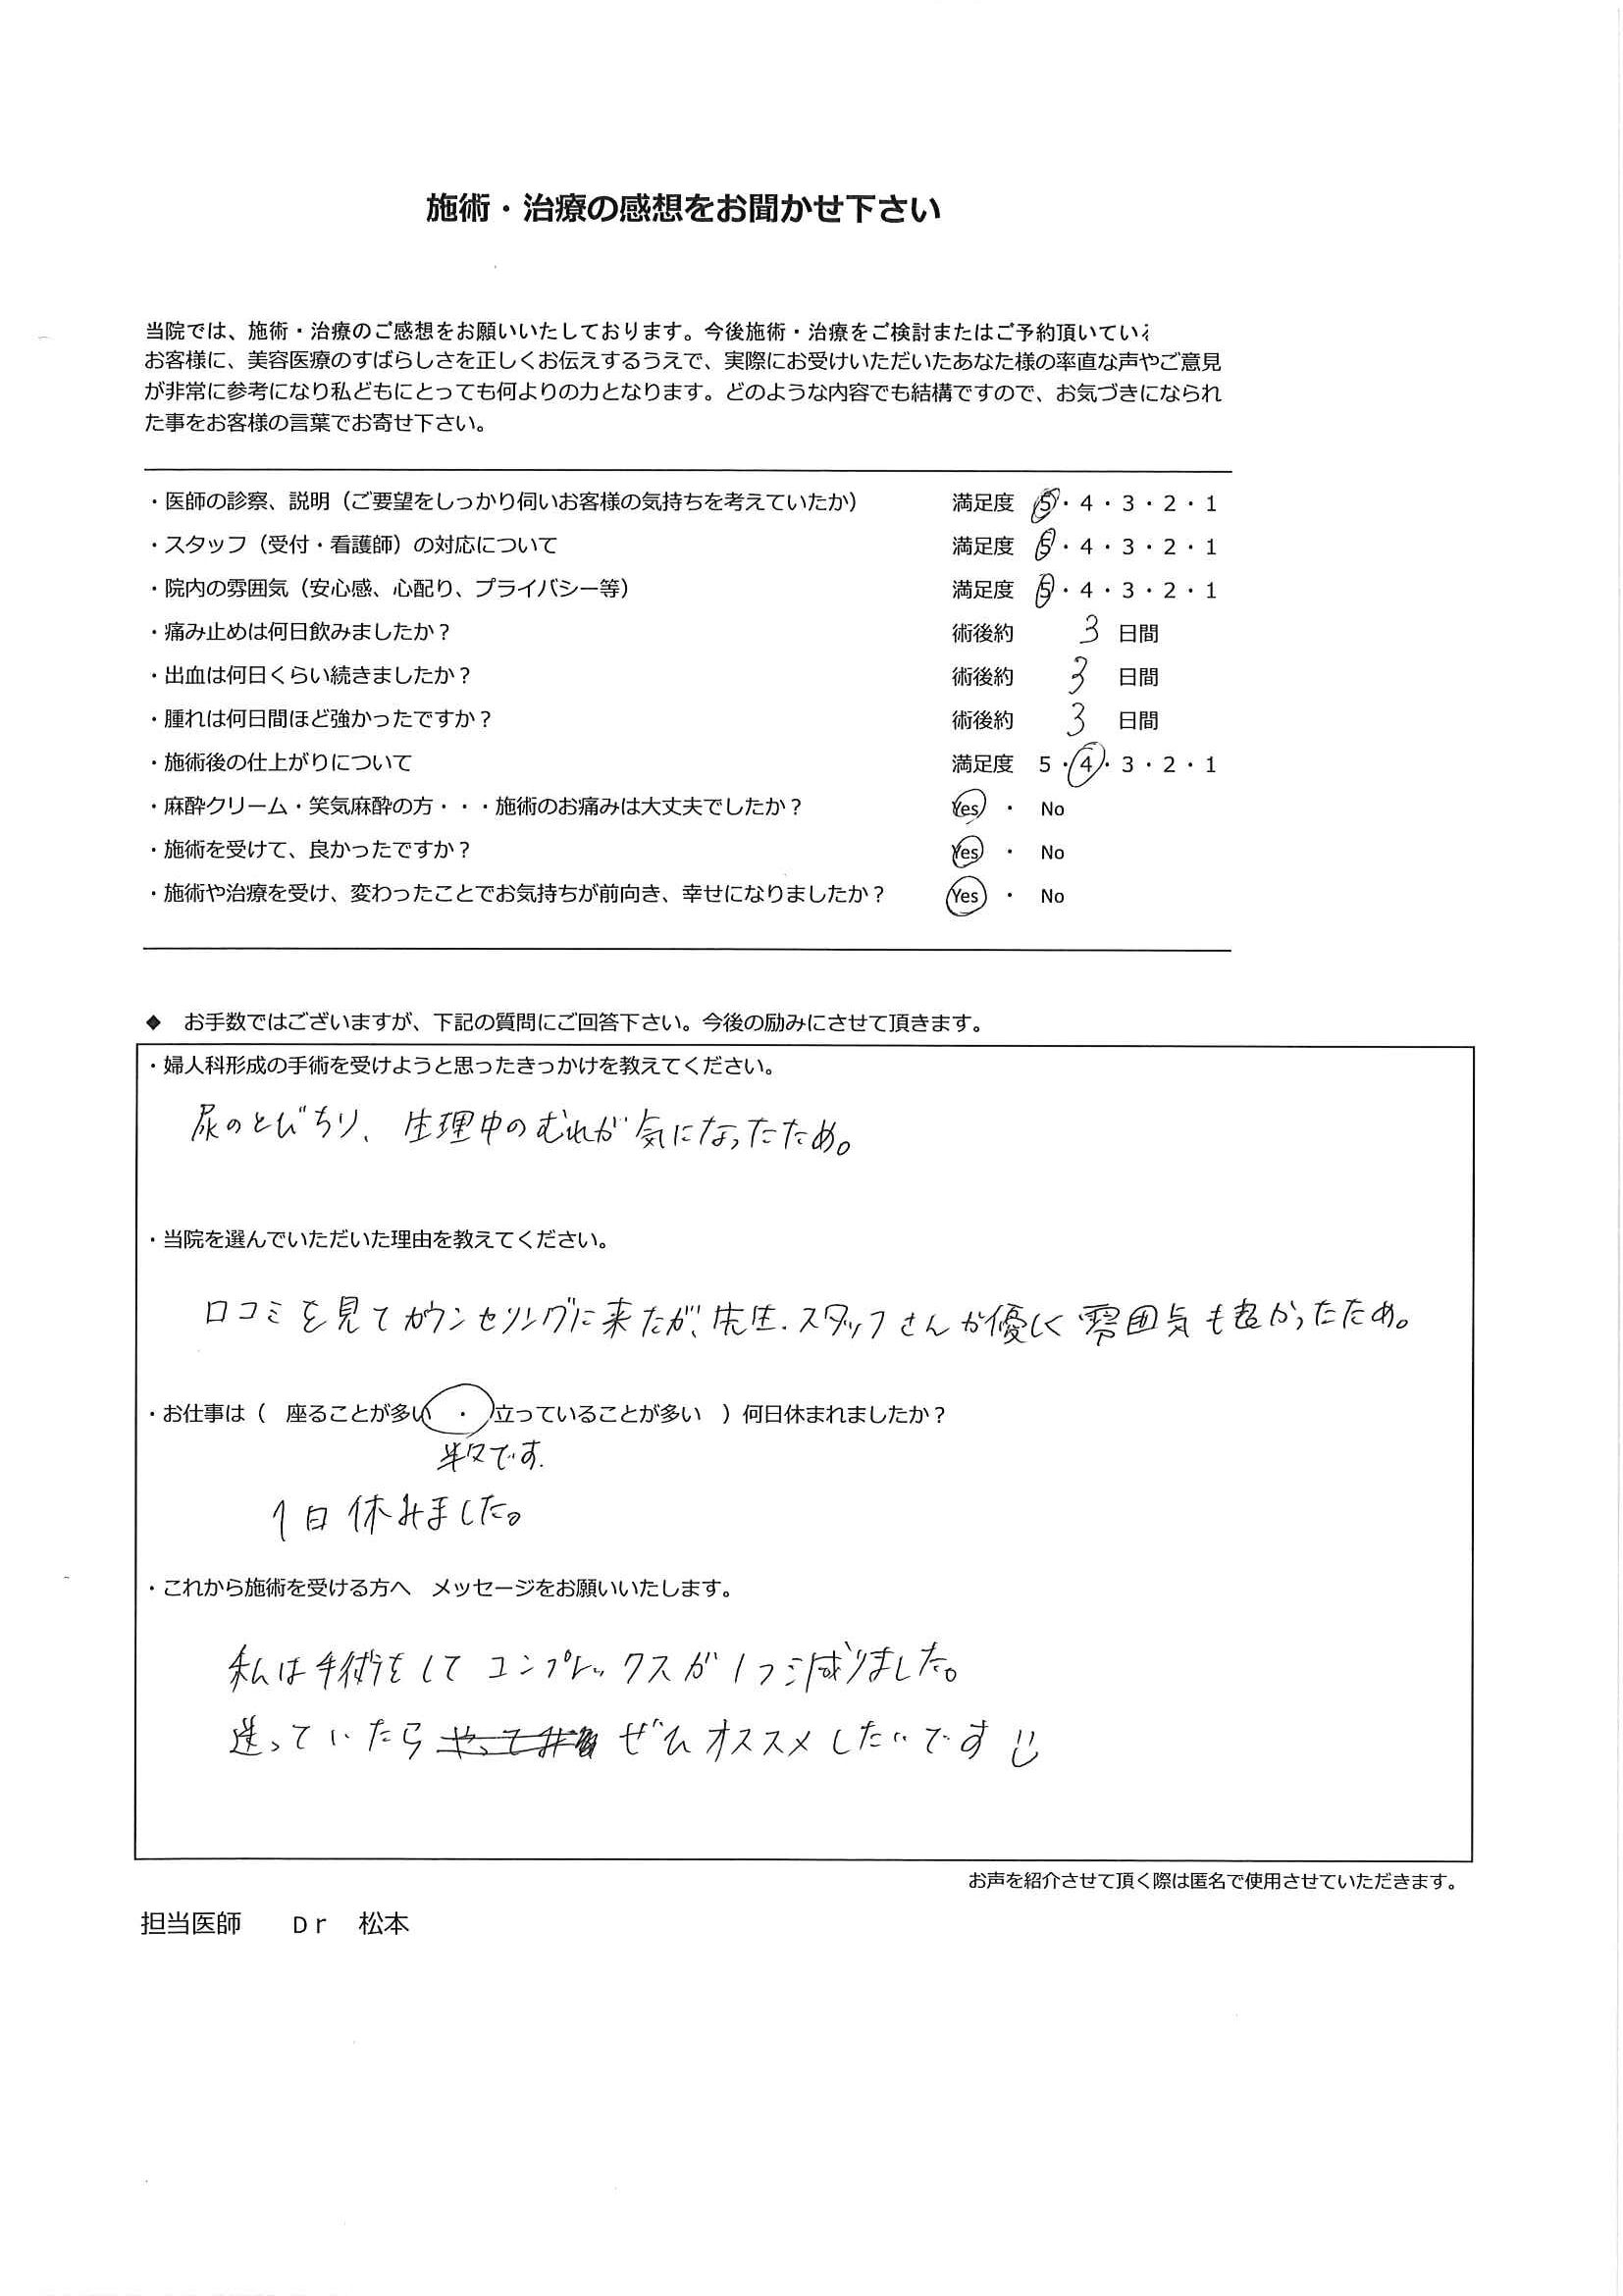 施術・治療の感想をお聞かせ下さい
当院では、施術・治療のご感想をお願いいたしております。今後施術・治療をご検討またはご予約頂いている
お客様に、美容医療のすばらしさを正しくお伝えするうえで、実際にお受けいただいたあなた様の率直な声やご意見
が非常に参考になり私どもにとっても何よりの力となります。どのような内容でも結構ですので、お気づきになられ
た事をお客様の言葉でお寄せ下さい。
・医師の診察、説明（ご要望をしっかり伺いお客様の気持ちを考えていたか） 満足度 5・4・3・2・1
・スタッフ（受付・看護師）の対応について 満足度 5・4・3・2・1
・院内の雰囲気（安心感、心配り、プライバシー等） 満足度 5・4・3・2・1
・痛み止めは何日飲みましたか？ 術後約 3 日間
・出血は何日くらい続きましたか？ 術後約 3 日間
・腫れは何日間ほど強かったですか？ 術後約 3 日間
・施術後の仕上がりについて 満足度 5・4・3・2・1
・麻酔クリーム・笑気麻酔の方・・・施術のお痛みは大丈夫でしたか？ Yes ・ No
・施術を受けて、良かったですか？ Yes ・ No
・施術や治療を受け、変わったことでお気持ちが前向き、幸せになりましたか？ Yes ・ No
◆ お手数ではございますが、下記の質問にご回答下さい。今後の励みにさせて頂きます。
・婦人科形成の手術を受けようと思ったきっかけを教えてください。
尿のとびちり、生理中のむれが気になったため。
・当院を選んでいただいた理由を教えてください。
口コミを見てカウンセリングに来たが、先生、スタッフさんが優しく雰囲気も良かったため。
・お仕事は（ 座ることが多い ・ 立っていることが多い ）何日休まれましたか？
半々です.
1日休みました。
・これから施術を受ける方へ メッセージをお願いいたします。
私は手術をしてコンプレックスが1つ減りました。
迷っていたら ぜひオススメしたいです
お声を紹介させて頂く際は匿名で使用させていただきます。
担当医師 Dr 松本